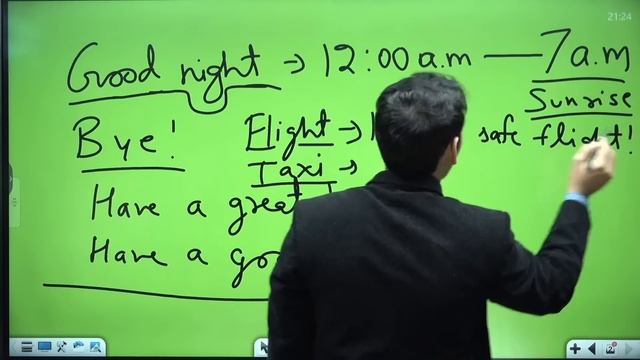 21:24
Good night → 12:00 a.m — 7 a.m
Sunrise
Bye!
Flight → safe flight!
Taxi →
Have a great
Have a go